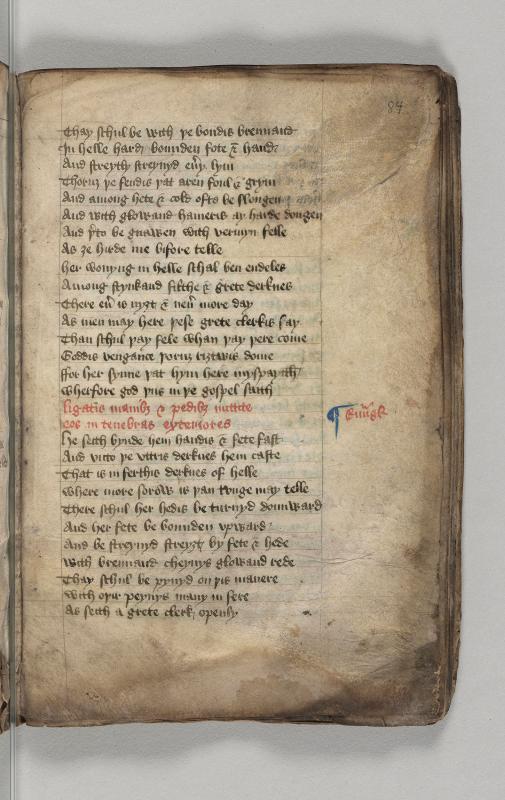 84
Thay schul be with þe bondis brennand
In helle hard bounden fote & hand
And streyth streynyd eu̅y lym
Thorw þe fendis þat aren foul & grym
And among hete & cold ofte be slongen
And with glowand hameris ay harde dongen
And þ̅to be gnawen with vermyn felle
As ȝe hirde me bifore telle
her wonyng in helle schal ben endeles
Among stynkand filthe & grete derknes
There eu̅ is nyȝt & neu̅ more day
As men may here þese grete clerkis say
Than schul þay fele whan þay þere come
Goddis vengance þorw riȝtwis dome
ffor her synne þat hym here myspayth
wherfore god þus in þe gospel saith
ligatis manibꝫ & pedibꝫ mittite
eos in tenebras exteriores
¶ Euu̅gł
He seith bynde hem handis & fete fast
And vnto þe vttris derknes hem caste
That is in ferthis derknes of helle
where more sorow is þan tonge may telle
There schul her hedis be turnyd dounward
And her fete be bounden vpward
And be streynyd streyȝt by fete & hede
with brennand cheynys glowand rede
Thay schul be pynyd on þis manere
with oþir peynys many in fere
As seith a grete clerk openly